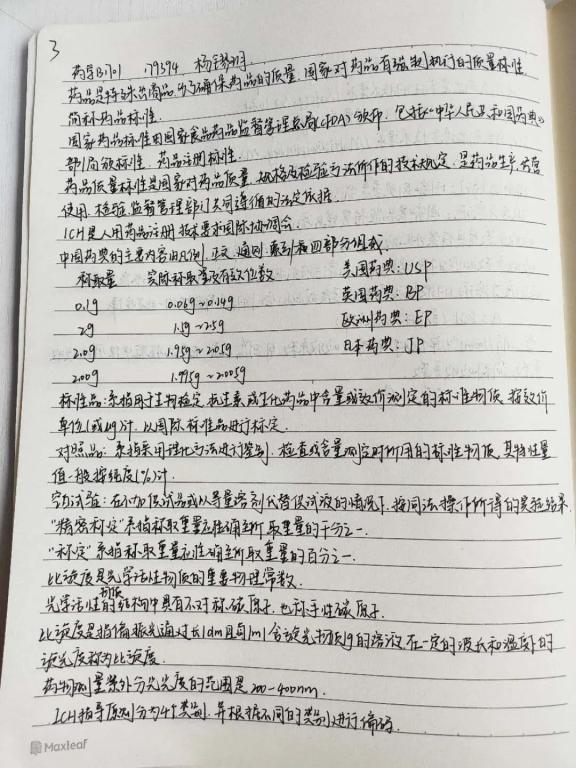 3
药学B1701 179394
药品是特殊商品,为了确保药品的质量,国家对药品有强制执行的质量标准,
简称药品标准。
国家药品标准由国家食品药品监督管理总局(CFDA)颁布,包括《中华人民共和国药典》
部局颁标准、药品注册标准。
药品质量标准是国家对药品质量、规格及检验方法所作的技术规定,是药品生产、
使用、检验、监督管理部门共同遵循的法定依据。
ICH是人用药品注册技术要求国际协调会
中国药典的主要内容由凡例、正文、通则、索引和四部分组成
称取量 实际称取量及有效位数 美国药典:USP
0.1g 0.06g~0.14g 英国药典:BP
2g 1.5g~2.5g 欧洲药典:EP
2.0g 1.95g~2.05g 日本药典:JP
2.00g 1.995g~2.005g
标准品:系指用于生物检定、抗生素或生化药品中含量或效价测定的标准物质,按效价
单位(或μg)计,以国际标准品进行标定.
对照品:系指采用理化方法进行鉴别、检查或含量测定时所用的标准物质,其特性量
值一般按纯度(%)计.
空白试验:在不加供试品或以等量溶剂代替供试液的情况下,按同法操作所得的实验结果.
"精密称定"系指称取重量应准确至所取重量的千分之一.
"称定"系指称取重量应准确至所取重量的百分之一.
比旋度是光学活性物质的重要物理常数.
光学活性物质的结构中具有不对称碳原子,也称手性碳原子.
比旋度是指偏振光通过长1dm且每1ml含旋光物质1g的溶液,在一定的波长和温度下的
旋光度称为比旋度.
药物测量紫外分光光度的范围是200-400nm.
ICH指导原则分为4个类别,并根据不同的类别进行编码.
Maxleaf